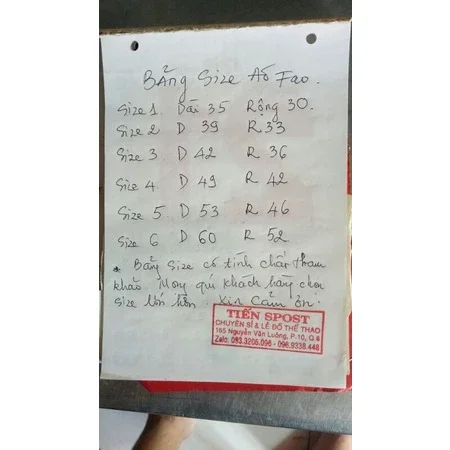 Bảng Size Áo Fao.
Size 1 Dài 35 Rộng 30.
Size 2 D 39 R 33
Size 3 D 42 R 36
Size 4 D 49 R 42
Size 5 D 53 R 46
Size 6 D 60 R 52
* Bảng Size có tính chất tham
khảo Mong quí khách hàng chọn
size lớn hơn. Xin Cảm ơn.
TIẾN SPOST
CHUYÊN SỈ & LẺ ĐỒ THỂ THAO
165 Nguyễn Văn Luông, P.10, Q.6
Zalo: 093.3205.096 - 096.9338.448